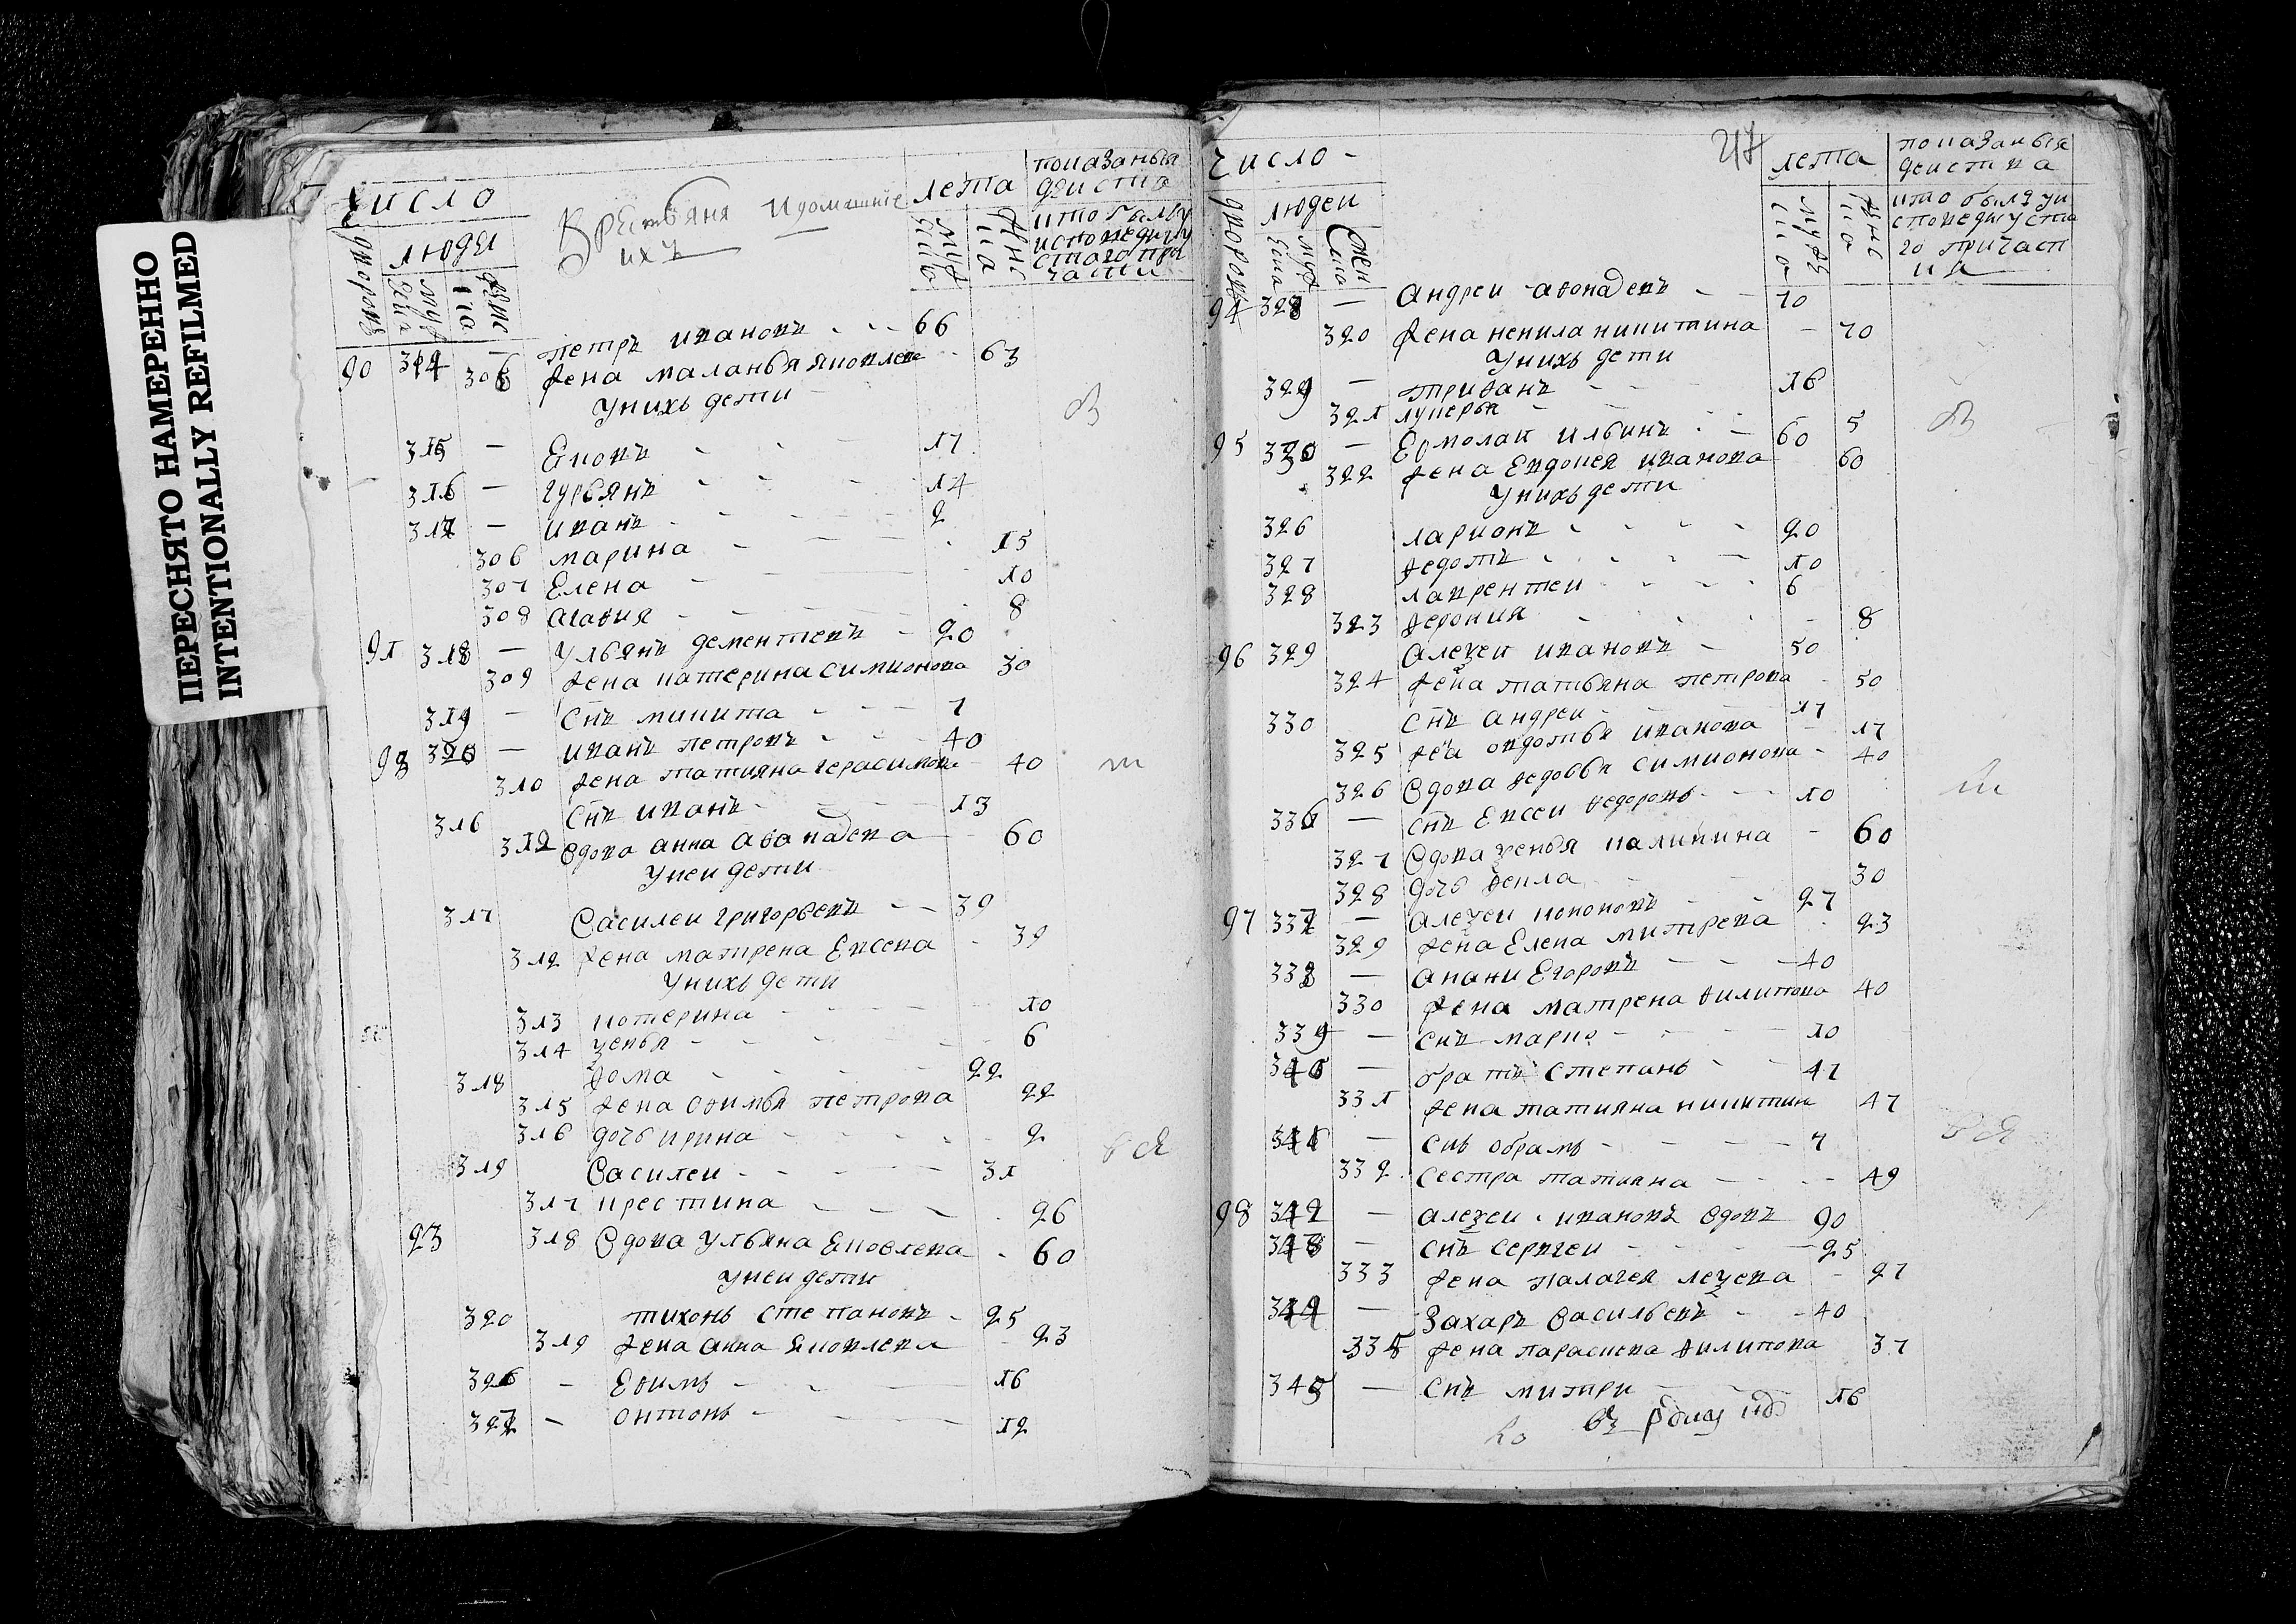 ПЕРЕСНЯТО НАМЕРЕННО
INTENTIONALLY REFILMED
число
людеи
дворовъ
Крестьяня и домашние
ихъ
лета
показаныя
деиства
кто был у
исповеди и у
стаго при
части
90 314 — петръ ивановъ 66
305 жена маланья яковлева 63
у нихъ дети
315 — Ековъ 17
316 — гурьянъ 14
317 — иванъ 2
306 марина 15
307 Елена 10
308 агафия 8
91 318 — Ульянъ дементиевъ 20
309 жена катерина симионова 30
319 — снъ микита 7
98 320 — иванъ петровъ 40
310 жена татияна герасимова 40
316 снъ иванъ 13
312 вдова анна афонасева 60
у неи дети
317 василеи григорьевъ 39
312 жена матрена Евсева 39
у нихъ дети
313 котерина 10
314 ѯенья 6
318 фома 22
315 жена офимья петрова 22
316 дочь ирина 2
319 василеи 31
317 крестина 26
93 318 вдова ульяна Ековлева 60
у неи дети
320 тихонь степановъ 25
319 жена анна яковлева 23
326 — Ефимъ 16
327 — онтонь 12
число
людеи
дворовъ
47
лета
показаныя
деиства
кто был у и
споведи у ста
го причаст
ия
94 328 — андреи афонасевъ 70
320 жена ненила никитина 70
у нихь дети
329 — трифанъ 16
321 лукерья 5
95 330 — Ермолаи ильинъ 60
322 жена Евдокея иванова 60
у нихь дети
326 ларионъ 20
327 федотъ 10
328 лаврентеи 6
323 ферония 8
96 329 алеѯеи ивановъ 50
324 жена татьяна петрова 50
330 снъ андреи 17
325 жена овдотья иванова 17
326 вдова федосья симионова 40
336 — снъ Евсеи федоровъ 10
327 вдова ѯенья калинина 60
328 дочь фекла 30
97 337 — алеѯеи кононовъ 27
329 жена Елена митрева 23
338 — анани Егоровъ 40
330 жена матрена филипова 40
339 — снъ марко 10
340 — братъ степанъ 47
331 жена татияна никитина 47
341 — снъ обрамъ 7
332 сестра татияна 49
98 342 — алеѯеи ивановъ вдовъ 90
343 — снъ сергеи 25
333 жена палагея леѯева 27
344 — Захаръ васильевъ 40
335 жена парасиева филипова 37
345 — снъ митри 16